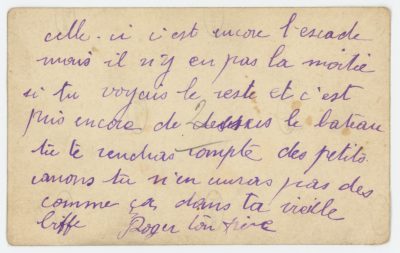 celle-ci c'est encore l'escade
mais il n'y en pas la moitié
si tu voyais le reste et c'est
pris encore de dessus le bateau
tu te rendras compte des petits
canons tu n'en auras pas des
comme ça dans ta vieille
biffe Roger ton frère